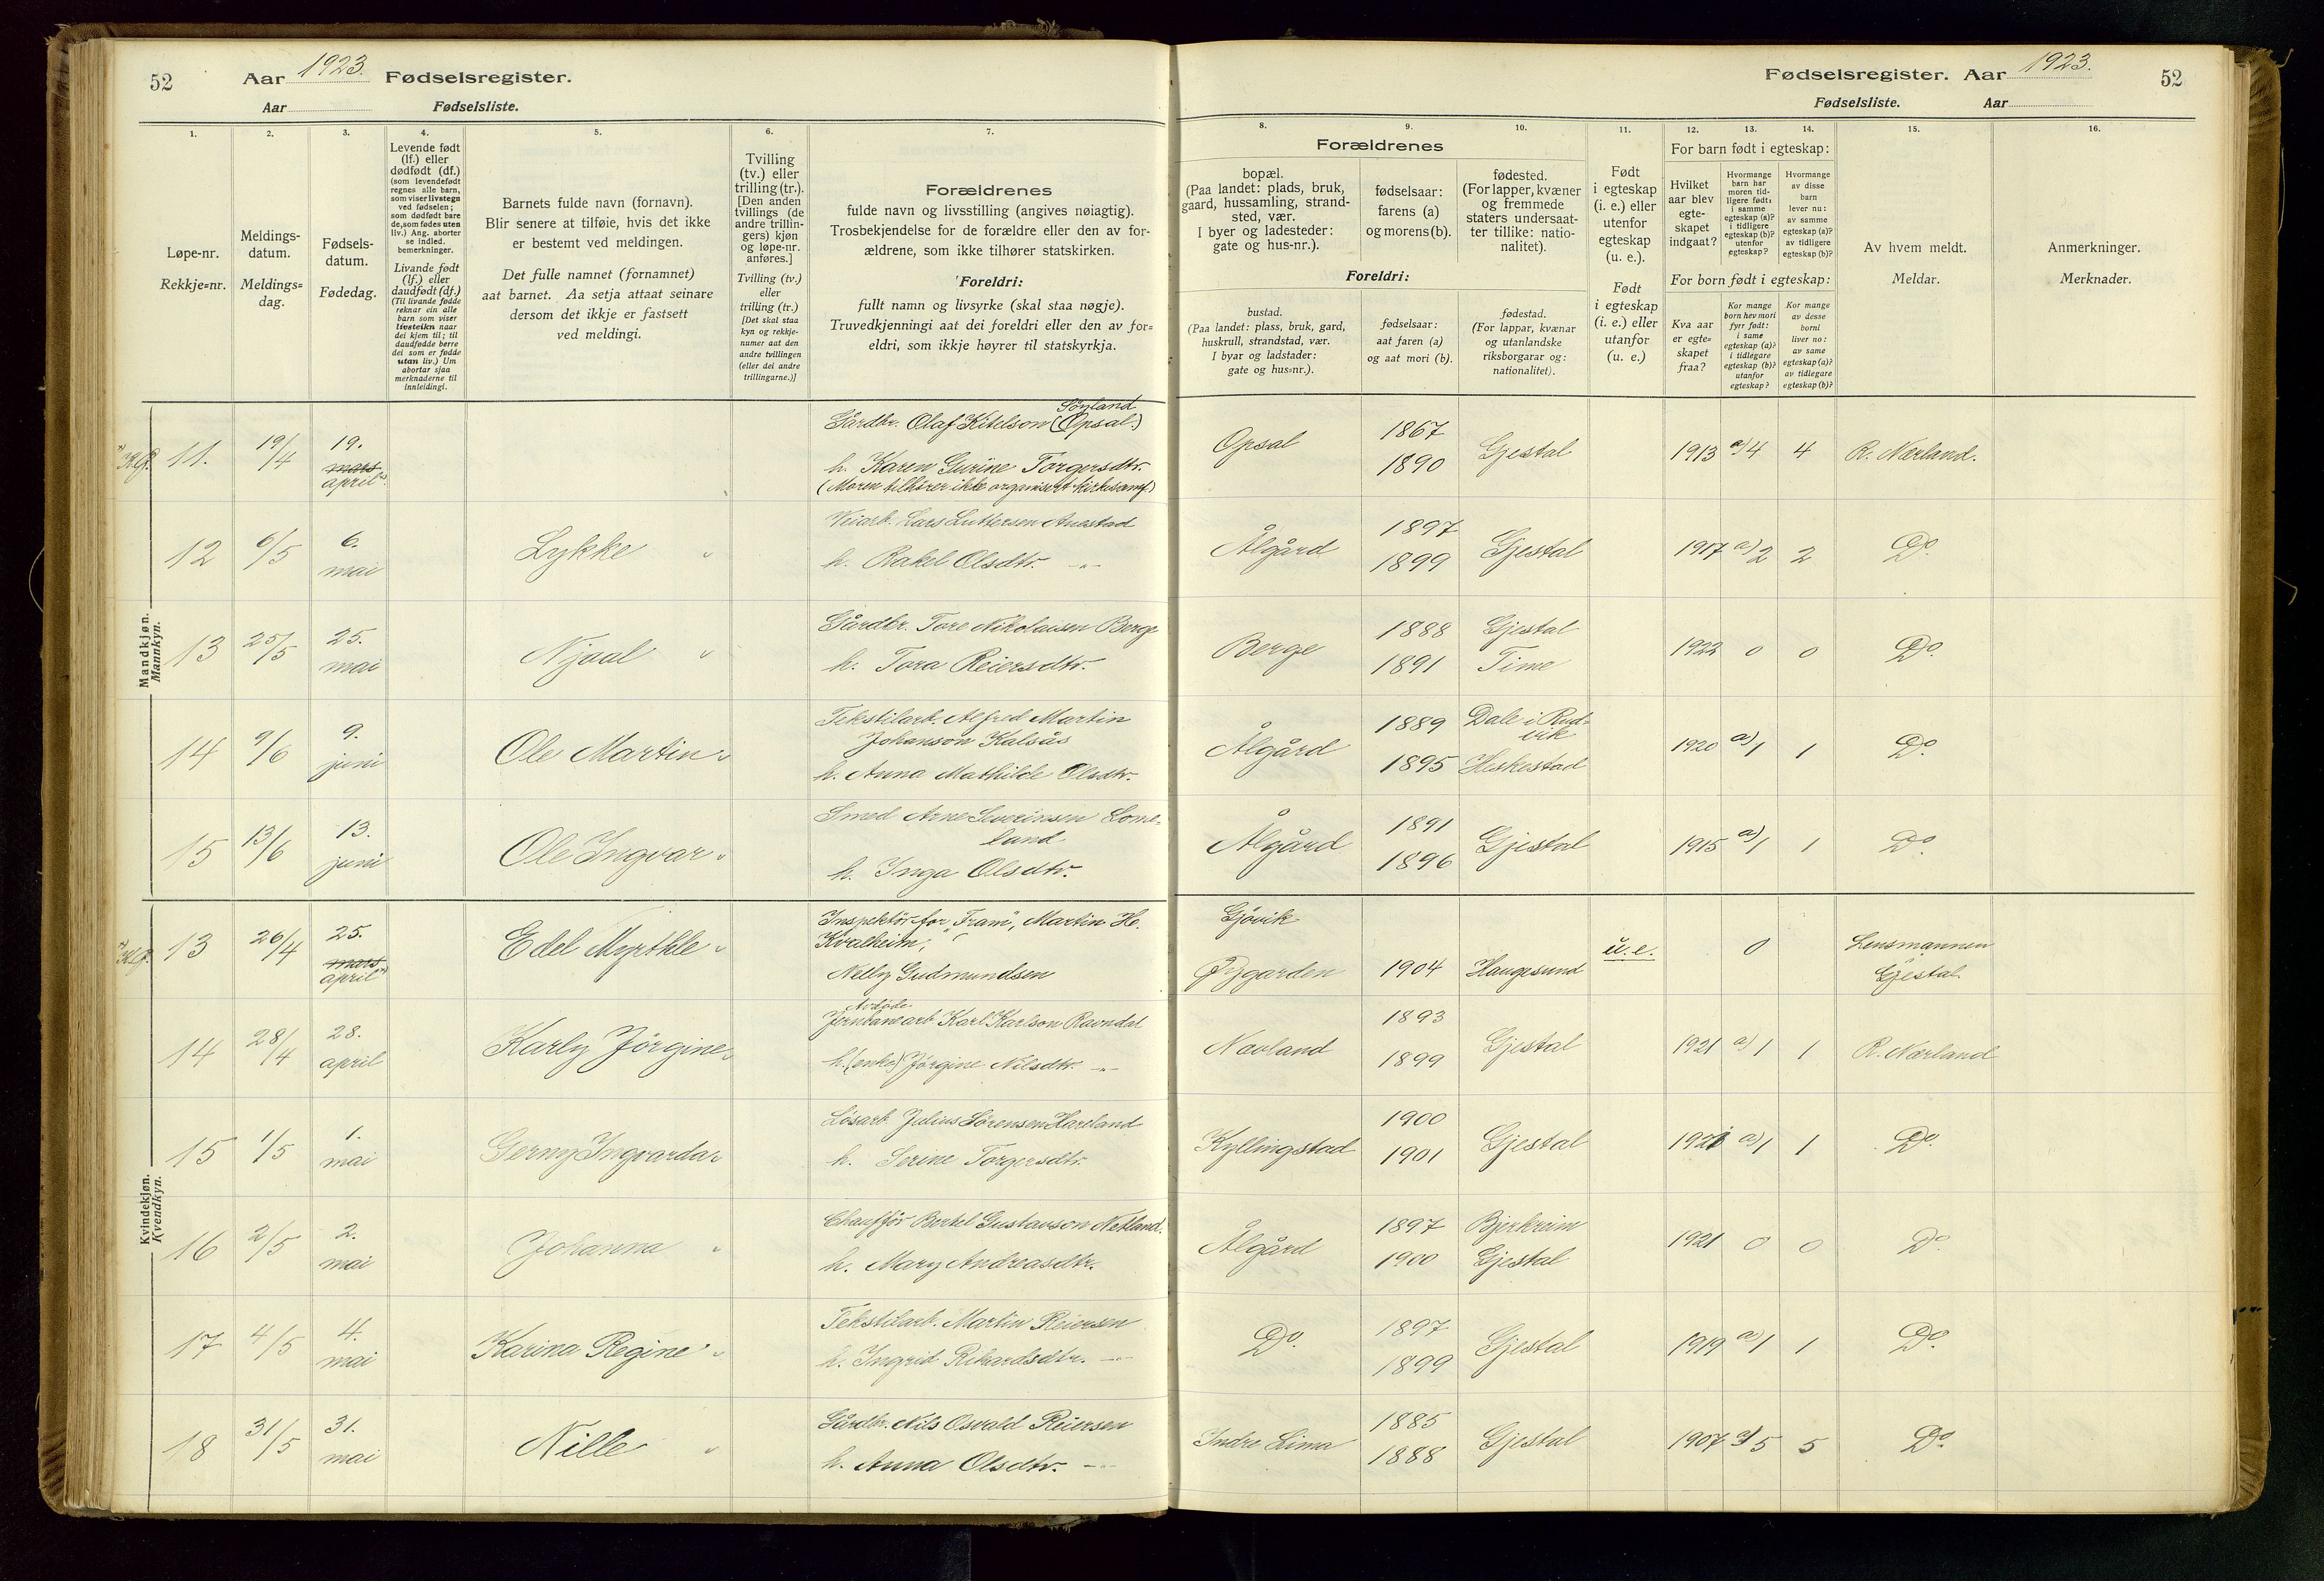 52 Aar 1923. Fødselsregister.
Aar Fødselsliste.
Fødselsregister. Aar 1923. 52
Fødselsliste. Aar
1. 2. 3. 4. 5. 6. 7.
Løpe-nr.
Rekkje=nr.
Meldings-
datum.
Meldings=
dag.
Fødsels-
datum.
Fødedag.
Levende født
(lf.) eller
dødfødt (df.)
(som levendefødt
regnes alle barn,
som viser livstegn
ved fødselen;
som dødfødt bare
de, som fødes uten
liv.) Ang. aborter
se indled.
bemerkninger.
Livande født
(lf.) eller
daudfødt (df.)
(Til livande fødde
reknar ein alle
barn som viser
livsteikn naar
dei kjem til; til
daudfødde berre
dei som er fødde
utan liv.) Um
abortar sjaa
merknaderne til
innleidingi.
Barnets fulde navn (fornavn).
Blir senere at tilføie, hvis det ikke
er bestemt ved meldingen.
Det fulle namnet (fornamnet)
aat barnet. Aa setja attaat seinare
dersom det ikkje er fastsett
ved meldingi.
Tvilling
(tv.) eller
trilling (tr.).
[Den anden
tvillings (de
andre trillin-
gers) kjøn
og løpe-nr.
anføres.]
Tvilling (tv.)
eller
trilling (tr.)
[Det skal staa
kyn og rekkje-
numer aat den
andre tvillingen
(eller dei andre
trillingarne.)]
Forældrenes
fulde navn og livsstilling (angives nøiagtig).
Trosbekjendelse for de forældre eller den av for-
ældrene, som ikke tilhører statskirken.
Foreldri:
fullt namn og livsyrke (skal staa nøgje).
Truvedkjenningi aat dei foreldri eller den av for=
eldri, som ikkje høyrer til statskyrkja.
8. 9. 10. 11. 12. 13. 14. 15. 16.
Forældrenes
bopæl.
(Paa landet: plads, bruk,
gaard, hussamling, strand-
sted, vær.
I byer og ladesteder:
gate og hus-nr.).
fødselsaar:
farens (a)
og morens (b).
fødested.
(For lapper, kvæner
og fremmede
staters undersaat-
ter tillike: natio-
nalitet).
Foreldri:
bustad.
(Paa landet: plass, bruk, gard,
huskrull, strandstad, vær.
I byar og ladstader:
gate og hus=nr.).
fødselsaar:
aat faren (a)
og aat mori (b).
fødestad.
(For lappar, kvænar
og utanlandske
riksborgarar og:
nationalitet).
Født
i egteskap
(i. e.) eller
utenfor
egteskap
(u. e.).
Født
i egteskap
(i. e.) eller
utanfor
(u. e.)
For barn født i egteskap:
Hvilket
aar blev
egte-
skapet
indgaat?
Hvormange
barn har
moren tid-
ligere født:
i samme
egteskap (a)?
i tidligere
egteskap (b)?
utenfor
egteskap?
Hvormange
av disse
barn
lever nu:
av samme
egteskap (a)?
av tidligere
egteskap (b)?
For born født i egteskap:
Kva aar
er egte=
skapet
fraa?
Kor mange
born hev mori
fyrr født:
i same
egteskap (a)?
i tidlegare
egteskap (b)?
utanfor
egteskap?
Kor mange
av desse
borni
liver no:
av same
egteskap (a)?
av tidlegare
egteskap (b)?
Av hvem meldt.
Meldar.
Anmerkninger.
Merknader.
Mandkjøn.
Mannkyn.
11. 19/4 19. mars april Gårdbr. Olaf Kitelson (Opsal.) Søyland
h. Karen Gurine Torgersdtr.
(Moren tilhører ikke organisert kirkesamf.)
Opsal 1867 1890 Gjestal 1913 a) 4 4 R. Nærland.
12 6/5 6. mai Lykke Veiarb. Lars Luttersen Auestad
h. Rakel Olsdtr. -"-
Ålgård 1897 1899 Gjestal 1917 a) 2 2 Do.
13 25/5 25. mai Njaal Gårdbr. Tore Nikolausen Berge
h. Tora Reiersdtr.
Berge 1888 Gjestal 1891 Time 1922 0 0 Do.
14 9/6 9. juni Ole Martin Tekstilarb. Alfred Martin
Johanson Kalsås
h. Anna Mathilde Olsdtr.
Ålgård 1889 Dale i 1895 Heskestad 1920 a) 1 1 Do.
15 13/6 13. juni Ole Ingvar Smed Arne Severinsen Lome-
land
h. Inga Olsdtr.
Ålgård 1891 1896 Gjestal 1915 a) 1 1 Do.
Kvindekjøn.
Kvendkyn.
13 26/4 25. mars april Edel Myrthle Inspektør for "Fram", Martin H.
Kvalheim,
Nelly Gudmundsen
Gjøvik
Øygarden 1904 Haugesund u. e. 0 Lensmannen
Gjestal
14 28/4 28. april Karly Jørgine Avdøde
Jernbanearb Karl Karlson Ravndal
h. (enke) Jørgine Nilsdtr. -"-
Navland 1893 1899 Gjestal 1921 a) 1 1 R. Nærland
15 1/5 1. mai Gerny Ingvarda Løsarb. Julius Sørensen Haaland
h. Serine Torgersdtr.
Kyllingstad 1900 1901 Gjestal 1921 a) 1 1 Do.
16 2/5 2. mai Johanna Chauffør Bertel Gustavson Netland.
h. Mary Andreasdtr.
Ålgård 1897 Bjerkreim 1900 Gjestal 1921 0 0 Do.
17 4/5 4. mai Karina Regine Tekstilarb. Martin Reiersen
h. Ingrid Rikardsdtr. -"-
Do. 1897 1899 Gjestal 1919 a) 1 1 Do.
18 31/5 31. mai Nille Gårdbr. Nils Osvald Reiersen
h. Anna Olsdtr. -"-
Indre Lima 1885 1888 Gjestal 1907 a) 5 5 Do.